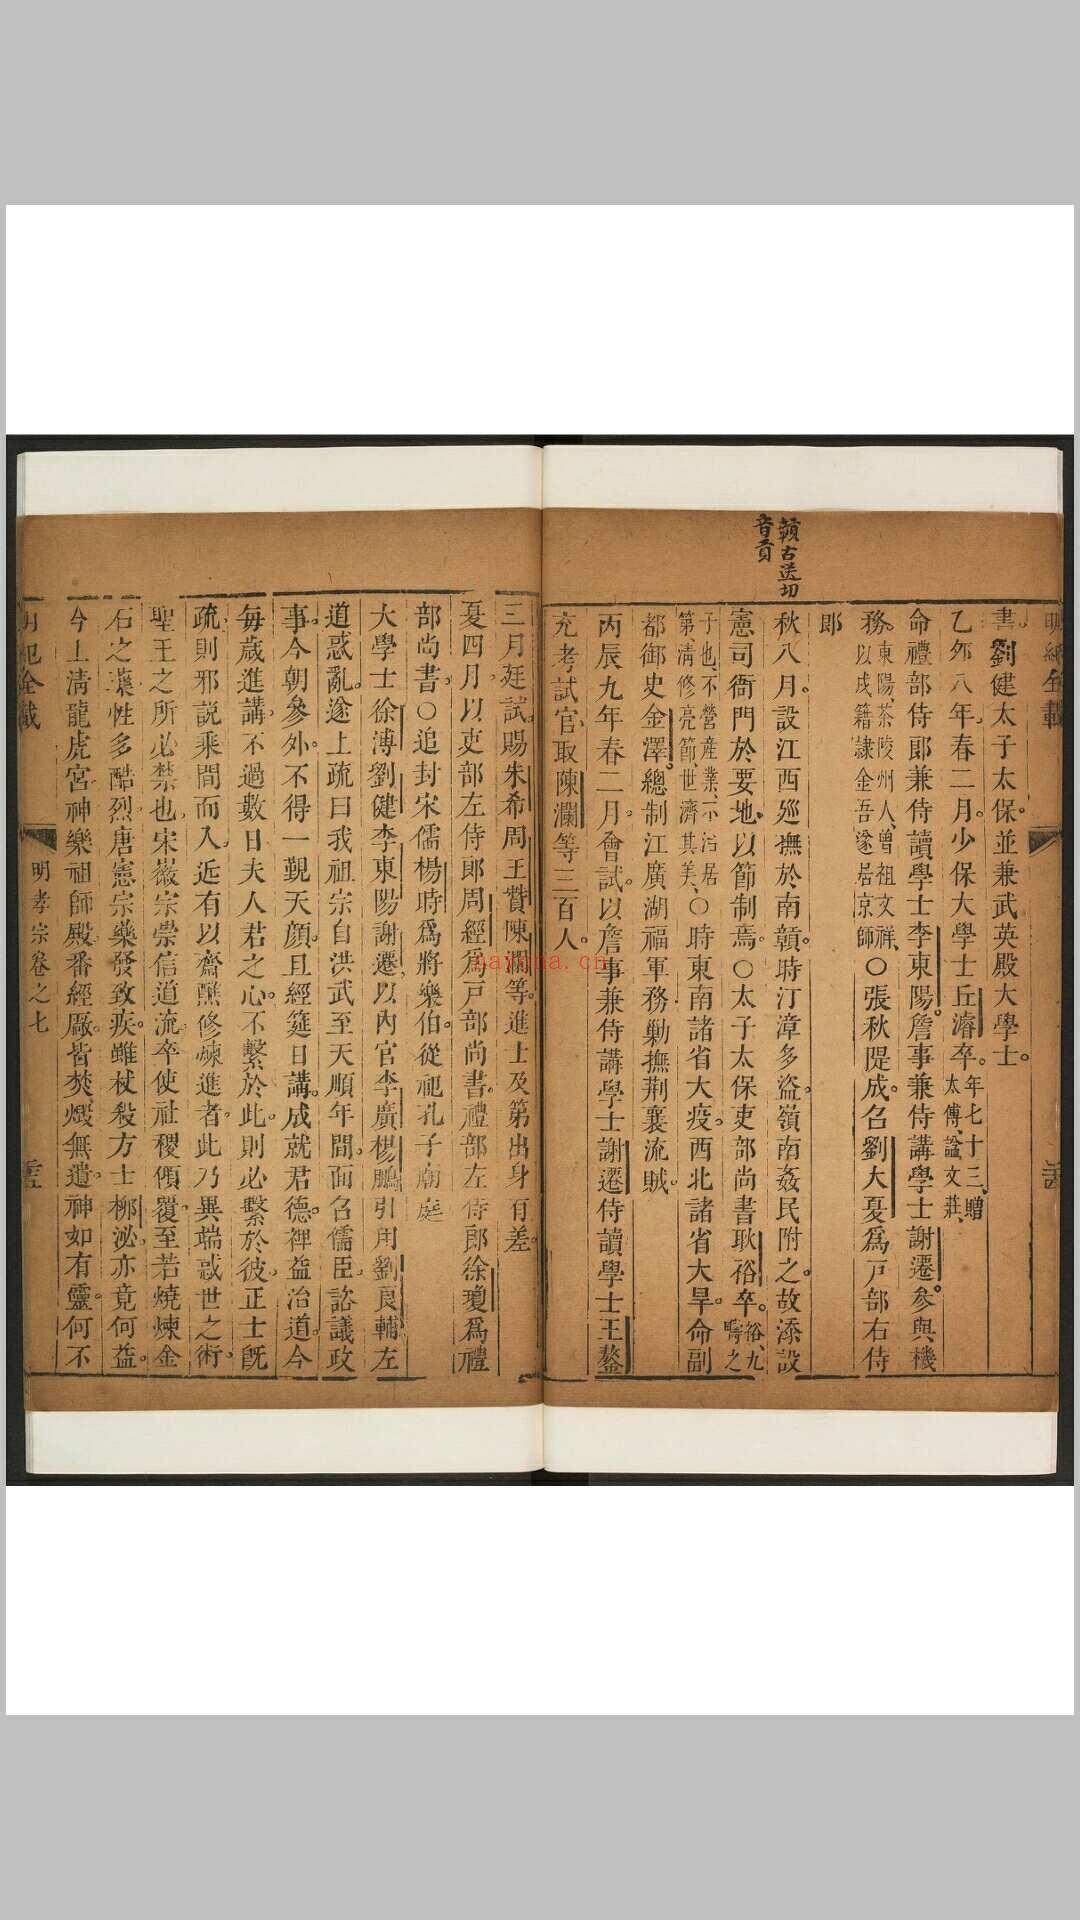 贑古送切
音貢
書劉健太子太保。並兼武英殿大學士。
乙夘八年春二月。少保大學士丘濬卒。年七十三、贈太傅、諡文莊、
命禮部侍郎兼侍讀學士李東陽。詹事兼侍講學士謝遷。參與機
務。東陽、茶陵州人、曾祖文祥、以戍籍隷金吾、遂居京師○張秋隄成。召劉大夏爲戸部右侍
郎
秋八月。設江西廵撫於南贑。時汀漳多盜。嶺南姦民附之。故添設
憲司衙門於要地、以節制焉。○太子太保吏部尚書耿裕卒。裕、九疇之
子也、不營産業、一小治居第、淸修亮節、世濟其美、○時東南諸省大疫。西北諸省大旱。命副
都御史金澤。總制江廣湖福軍務勦撫荆襄流賊。
丙辰九年春二月會試。以詹事兼侍講學士謝遷侍讀學士王鏊
充考試官、取陳瀾等三百人。
三月廷試。賜朱希周王贊陳瀾等。進士及第出身有差。
夏四月。以吏部左侍郎周經爲戸部尚書。禮部左侍郎徐瓊爲禮
部尚書。○追封宋儒楊時爲將樂伯。從祀孔子廟庭
大學士徐溥劉健李東陽謝遷以内官李廣楊鵬引用劉良輔左
道惑亂。遂上疏曰我祖宗自洪武至天順年間。面召儒臣、諮議政
事。今朝參外。不得一覲天顔。且經筵日講。成就君德。裨益治道。今
每歲進講、不過數日夫人君之心。不繫於此。則必繫於彼。正士旣
疏、則邪説乘間而入、近有以齋醮修煉進者。此乃異端惑世之術、
聖王之所必禁也、宋徽宗崇信道流。卒使社稷傾覆。至若燒煉金
石之藥性多酷烈。唐憲宗藥發致疾。雖杖殺方士柳泌。亦竟何益。
今上淸龍虎宮、神樂祖師殿、番經厰。皆焚燬無遺。神如有靈。何不
明孝宗卷之七